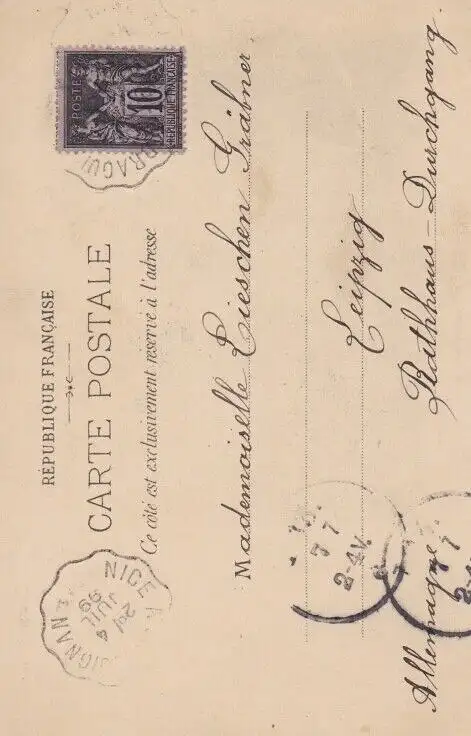 RÉPUBLIQUE FRANÇAISE
CARTE POSTALE
Ce côté est exclusivement réservé à l'adresse
POSTE
10
REPUBLIQUE FRANÇAISE
NICE
JUIL
99
Mademoiselle Lieschen Gräbner
Leipzig
Rathhaus-Durchgang
Allemagne
7 7
2-4V.
7